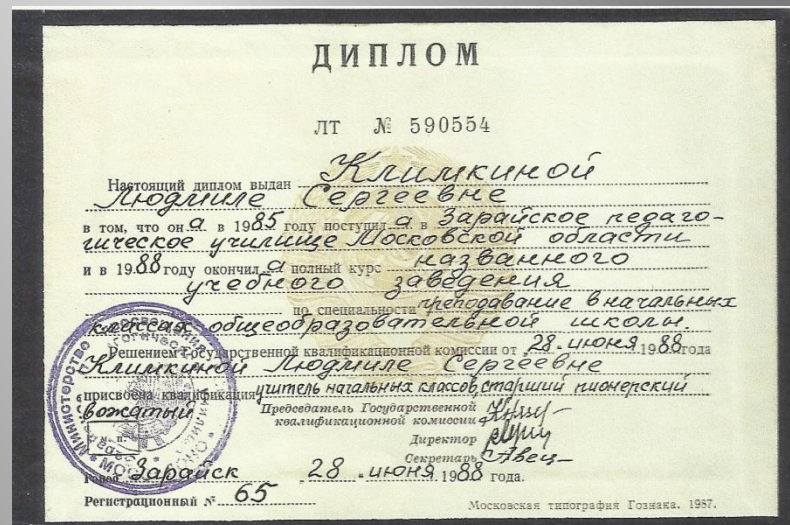 ДИПЛОМ
ЛТ № 590554
Настоящий диплом выдан Климкиной
Людмиле Сергеевне
в том, что он а в 1985 году поступил а в Зарайское педаго-
гическое училище Московской области
и в 1988 году окончил а полный курс названного
учебного заведения
по специальности преподавание в начальных
классах общеобразовательной школы.
Решением Государственной квалификационной комиссии от 28 июня 1988 года
Климкиной Людмиле Сергеевне
присвоена квалификация учитель начальных классов, старший пионерский
вожатый
Председатель Государственной
квалификационной комиссии
Директор
Секретарь
Город Зарайск 28 июня 1988 года.
Регистрационный № 65
Московская типография Гознака. 1987.
Министерство